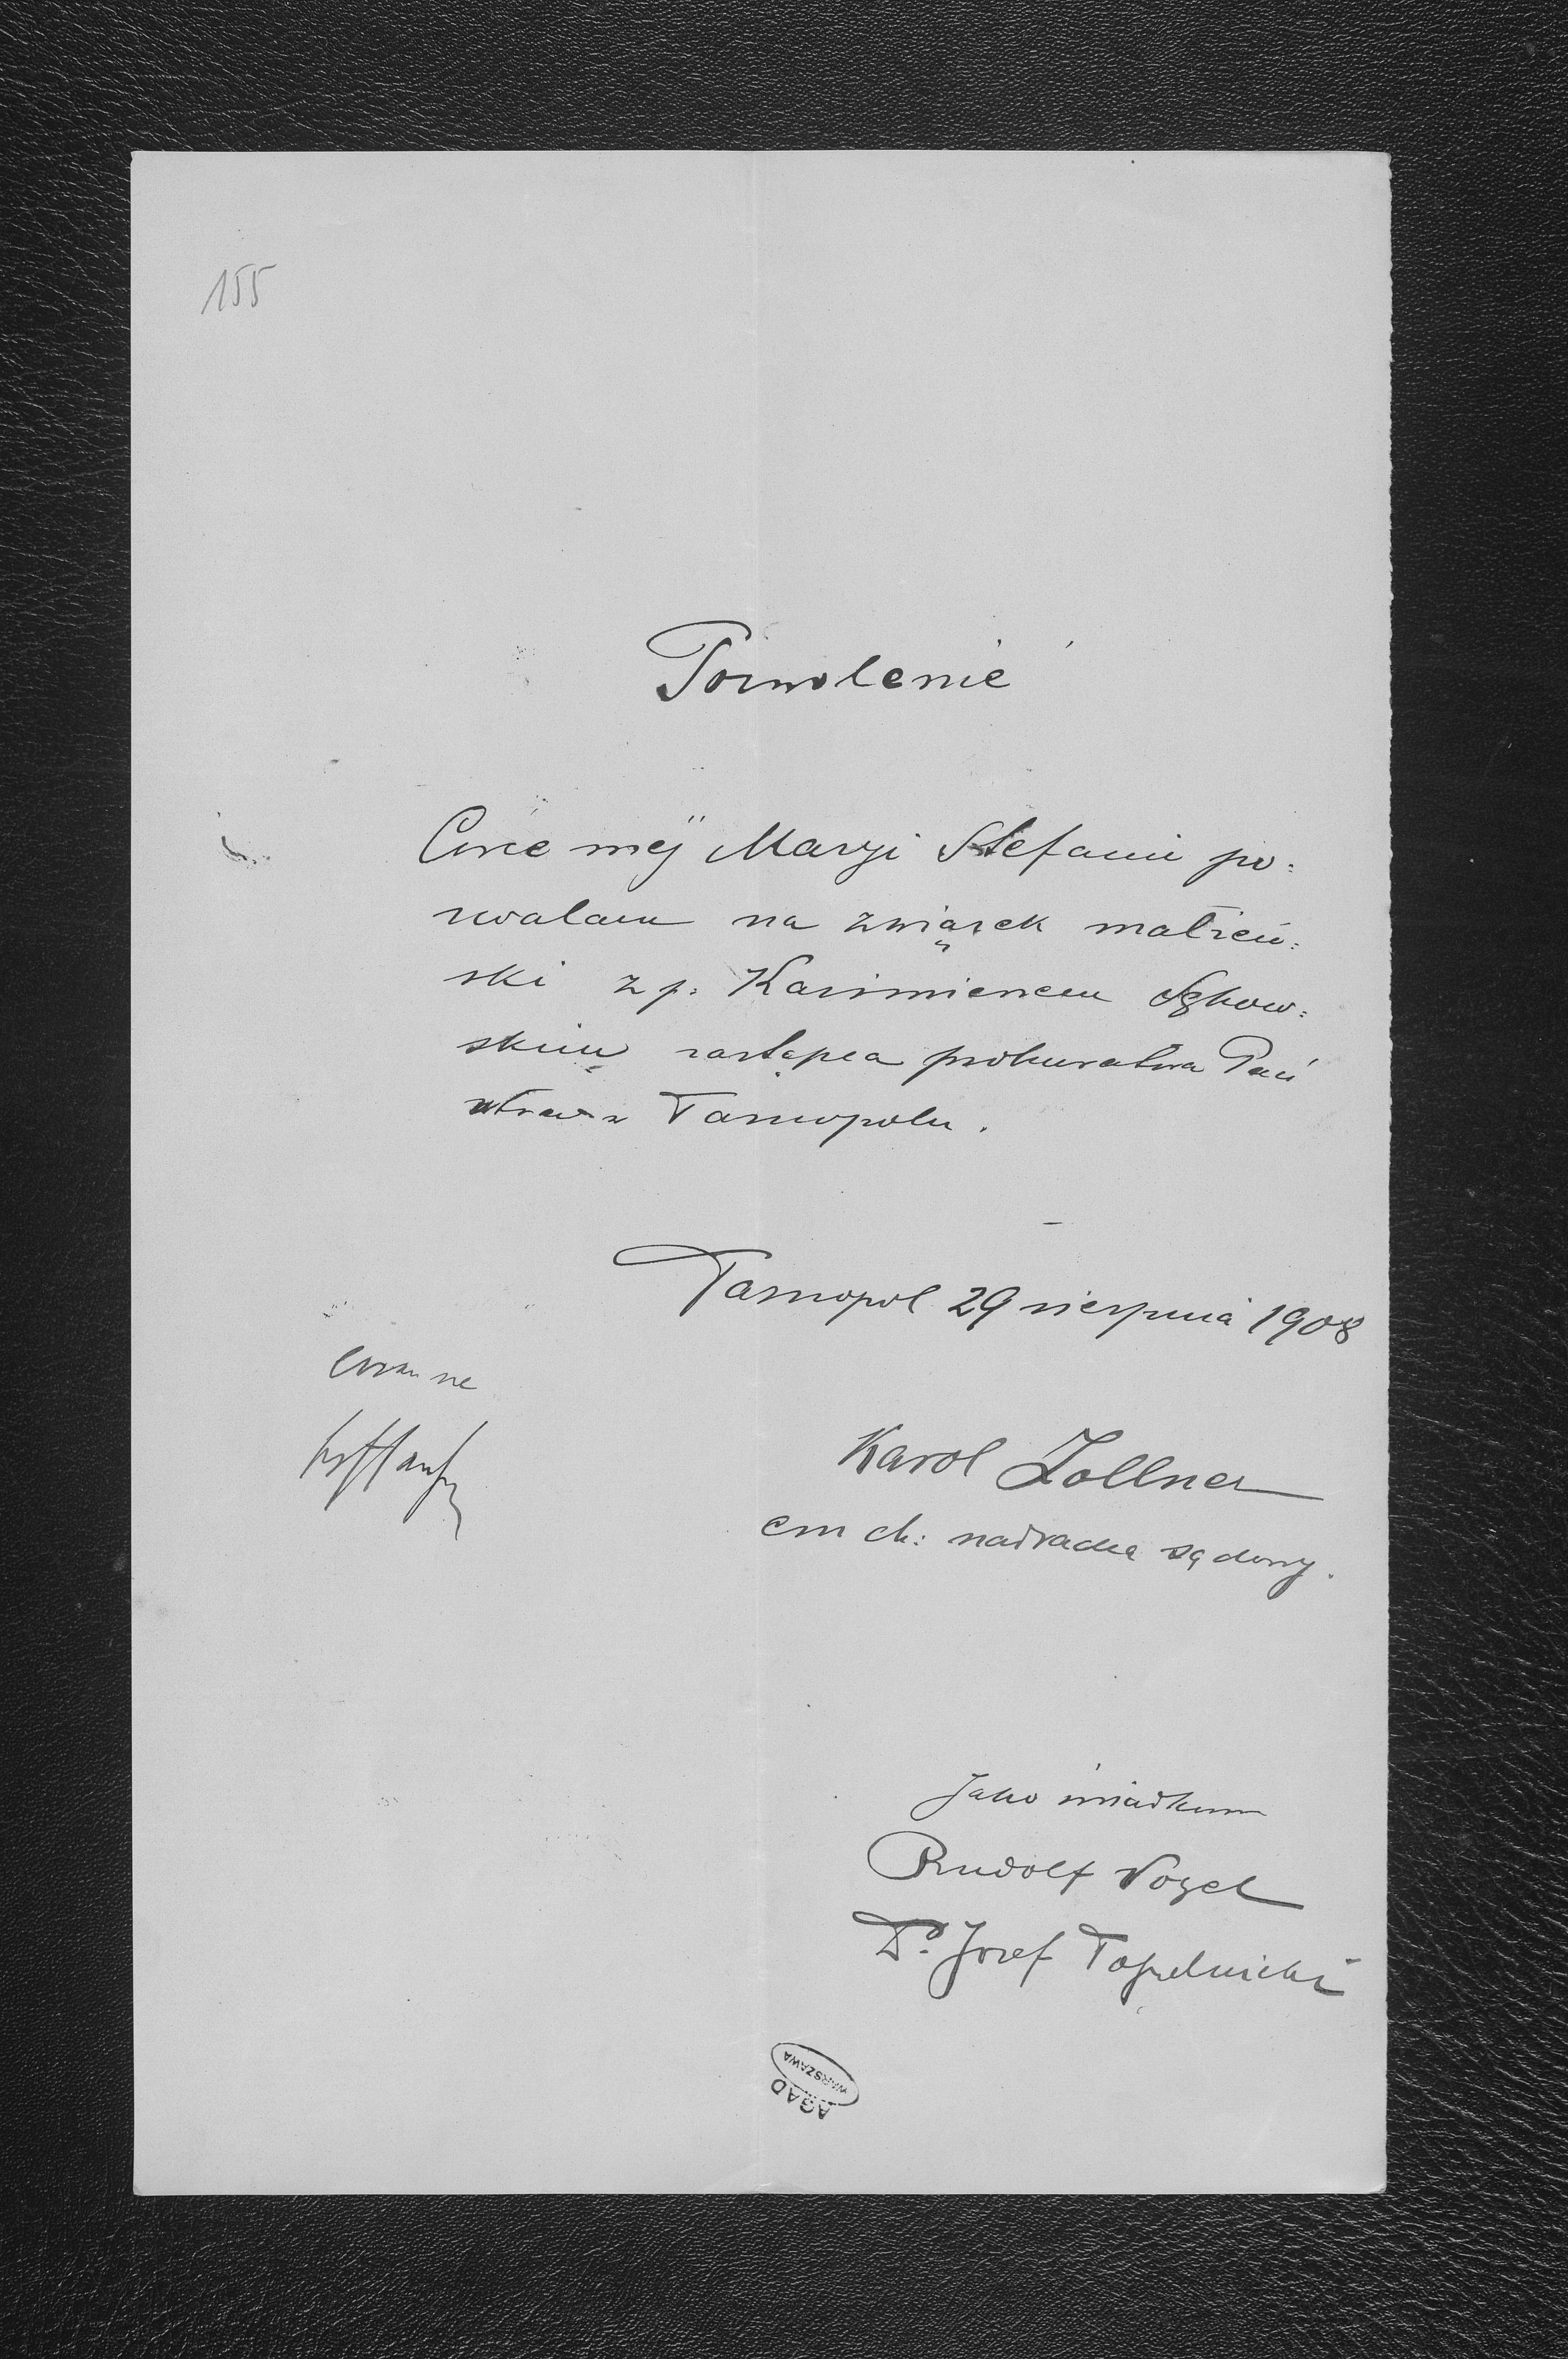 155
Pozwolenie
Córce mej Maryi Stefanii po=
zwalam na związek małżeń=
ski z p. Kazimierzem
skim zastępcą prokuratora Pań
stwa w Tarnopolu.
Tarnopol 29 sierpnia 1908
coram me
Karol Zollner
em ck: nadradca sądowy.
Jako świadkowie
Rudolf Vogel
Dr. Józef Topolnicki
AGAD
WARSZAWA